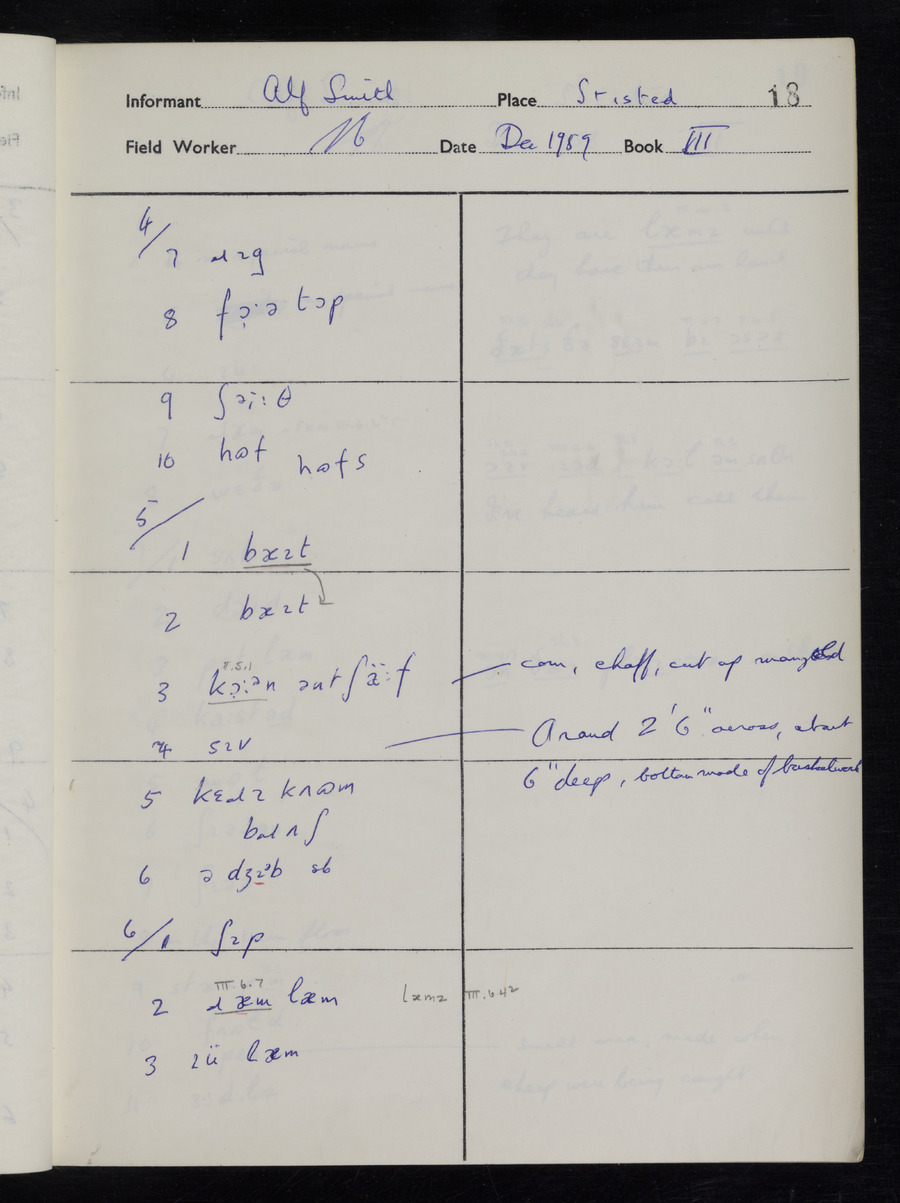 Informant Alf Smith Place Stisted 18
Field Worker Date Dec 1959 Book III
4/
7
8 fɔ̣:ə tɔp
9 ʃəi̜: θ
10 hɒf hɒfs
5/
1 bæɪt
2 bæɪt
II.5.1
3 kɔ̣:ən ənt ʃä:f corn, chaff, cut up mangold
4 sɪv Around 2'6" across, about
6" deep, bottom made of basketwork
5
6 ə dʒɪəb
6/1 ʃɪp
III.6.7
2 læm læmz III.6.42
3 læm